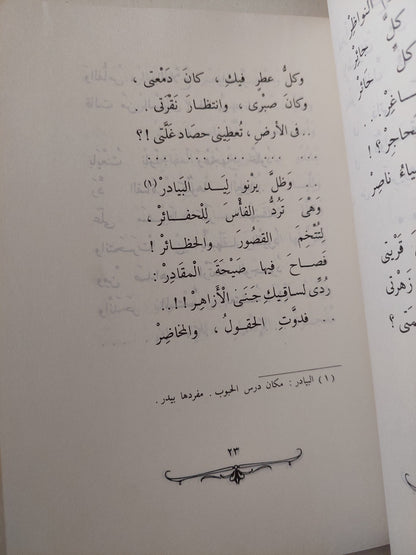 وكلُّ عطرٍ فيكِ ، كانَ دَمْعَتِى ،
وكانَ صبْرِى ، وانتظارَ نَقْرَتِى . .
. . فى الأرضِ ، تُعطِينى حصادَ غَلَّتِى !؟
... ... ... ... ...
. . وَظَلَّ يرْنو لِيَدِ الْبَيَادرْ (١)
وَهْىَ تَرُدُّ الفأْسَ لِلْحفائرْ ،
لِتُتْخِمَ القصُورَ والحظائرْ !
فَصَاحَ فيها صَيْحَةَ المقَادِرْ :
رُدِّى لساقيكِ جَنَى الْأَزَاهرْ !! . .
. . فدوَّتِ الحقولُ ، والمخاضِرْ
(١) البيادر : مكان درس الحبوب . مفردها بيدر .
٢٣
النواظِرْ
كلَّ جائِرْ
كلِّ حائر
ناصِرْ
قَرْيتِى
زهْرَتِى